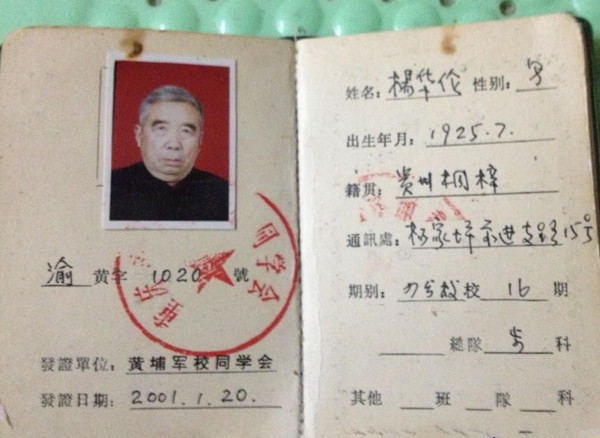 渝 黄字 1020 號
同学会
發證單位: 黄埔军校同学会
發證日期: 2001.1.20.
姓名: 楊华伦 性别: 男
出生年月: 1925.7.
籍贯: 貴州桐梓
通訊處: 杨家坪前进支路15号
期别: 校 16 期
總隊 步 科
其他 班 隊 科